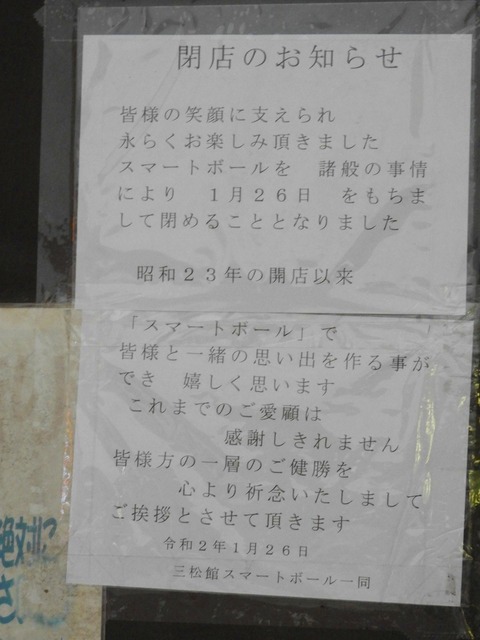 閉店のお知らせ
皆様の笑顔に支えられ
永らくお楽しみ頂きました
スマートボールを　諸般の事情
により　１月２６日　をもちま
して閉めることとなりました
昭和２３年の開店以来
「スマートボール」で
皆様と一緒の思い出を作る事が
でき　嬉しく思います
これまでのご愛顧は
感謝しきれません
皆様方の一層のご健勝を
心より祈念いたしまして
ご挨拶とさせて頂きます
令和２年１月２６日
三松館スマートボール一同
絶対に